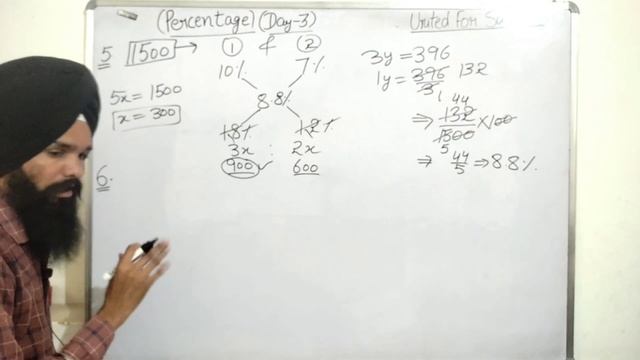 (Percentage) (Day-3)
United For Su
5 1500 → 1 & 2
10% 7%
8.8%
5x = 1500
x = 300
1.8% 1.2%
3x : 2x
900 ✓ 600
6.
3y = 396
1y = 396/3 132
1 44
⇒ 132/1500 × 100
5
⇒ 44/5 ⇒ 8.8%